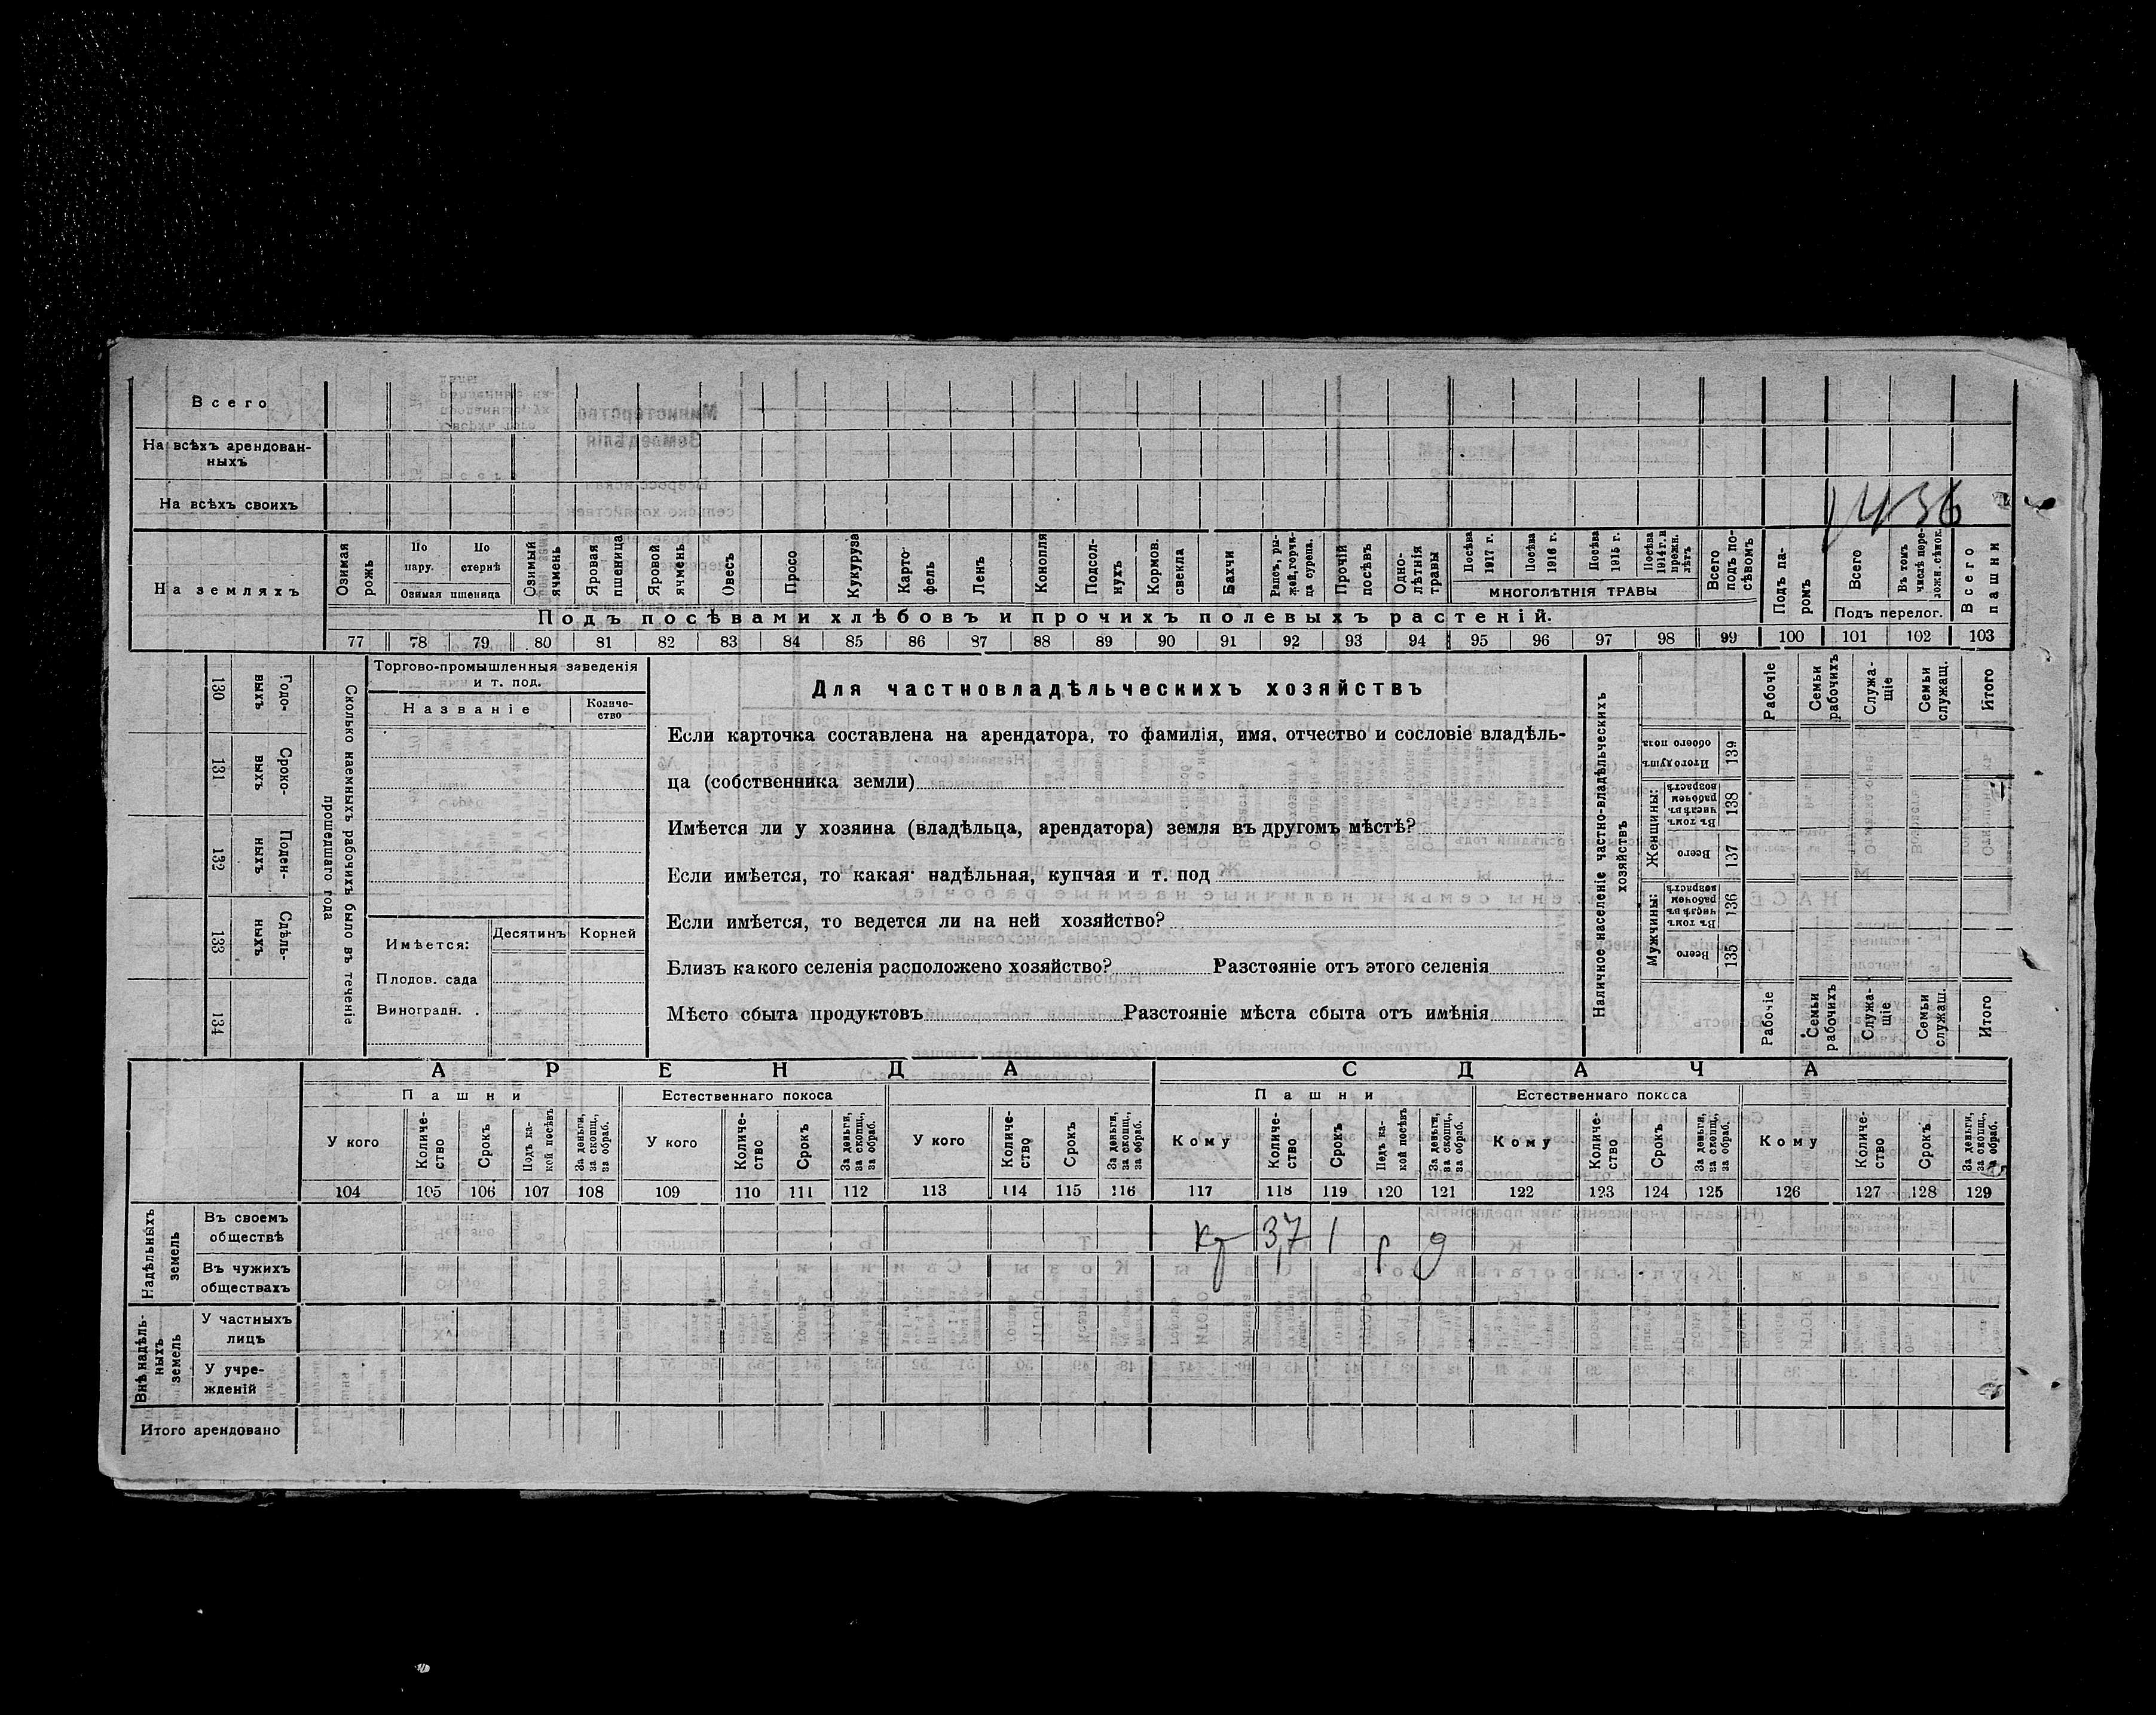 Всего
На всѣхъ арендован-
ныхъ
На всѣхъ своихъ
1436
На земляхъ
Озимая рожь
По пару.
По стернѣ
Озимая пшеница
Озимый ячмень
Яровая пшеница
Яровой ячмень
Овесъ
Просо
Кукуруза
Карто-
фель
Ленъ
Конопля
Подсол-
нухъ
Кормов. свекла
Бахчи
Рапсъ, ры-
жей, горчи-
ца сурепа.
Прочій посѣвъ
Одно-
лѣтнія травы
Посѣва 1917 г.
Посѣва 1916 г.
Посѣва 1915 г.
Посѣва 1914 г. и прежн. лѣтъ
МНОГОЛѢТНІЯ ТРАВЫ
Всего подъ по-
сѣвомъ
Подъ па-
ромъ
Всего
Въ томъ числѣ пере-
ложн. сѣнок.
Подъ перелог.
Всего пашни
Подъ посѣвами хлѣбовъ и прочихъ полевыхъ растеній.
77 78 79 80 81 82 83 84 85 86 87 88 89 90 91 92 93 94 95 96 97 98 99 100 101 102 103
130 131 132 133 134
Годо-
выхъ
Сроко-
выхъ
Поден-
ныхъ
Сдѣль-
ныхъ
Сколько наемныхъ рабочихъ было въ теченіе
прошедшаго года
Торгово-промышленныя заведенія
и т. под.
Названіе
Количе-
ство
Имѣется:
Десятинъ
Корней
Плодов. сада
Виноградн. .
Для частновладѣльческихъ хозяйствъ
Если карточка составлена на арендатора, то фамилія, имя, отчество и сословіе владѣль-
ца (собственника земли)
Имѣется ли у хозяина (владѣльца, арендатора) земля въ другомъ мѣстѣ?
Если имѣется, то какая надѣльная, купчая и т. под
Если имѣется, то ведется ли на ней хозяйство?
Близъ какого селенія расположено хозяйство? Разстояніе отъ этого селенія
Мѣсто сбыта продуктовъ Разстояніе мѣста сбыта отъ имѣнія
Наличное населеніе частно-владѣльческихъ
хозяйствъ
Рабочіе
Семьи рабочихъ
Служа-
щіе
Семьи служащ.
Итого
Итого душъ обоего пола
139
Женщины:
Въ томъ числѣ въ рабочемъ возрастѣ
138
Всего
137
Мужчины:
Въ томъ числѣ въ рабочемъ возрастѣ
136
Всего
135
Рабочіе
Семьи рабочихъ
Служа-
щіе
Семьи служащ.
Итого
АРЕНДА
СДАЧА
Пашни
Естественнаго покоса
Пашни
Естественнаго покоса
У кого
Количе-
ство
Срокъ
Подъ ка-
кой посѣвъ
За деньги, за скопщ., за обраб.
У кого
Количе-
ство
Срокъ
За деньги, за скопщ., за обраб.
У кого
Количе-
ство
Срокъ
За деньги, за скопщ., за обраб.
Кому
Количе-
ство
Срокъ
Подъ ка-
кой посѣвъ
За деньги, за скопщ., за обраб.
Кому
Количе-
ство
Срокъ
За деньги, за скопщ., за обраб.
Кому
Количе-
ство
Срокъ
За деньги, за скопщ., за обраб.
104 105 106 107 108 109 110 111 112 113 114 115 116 117 118 119 120 121 122 123 124 125 126 127 128 129
Надѣльныхъ земель
Въ своемъ
обществѣ
Кр 3,7 1 р д
Въ чужихъ
обществахъ
Внѣ надѣль-
ныхъ земель
У частныхъ
лицъ
У учре-
жденій
Итого арендовано